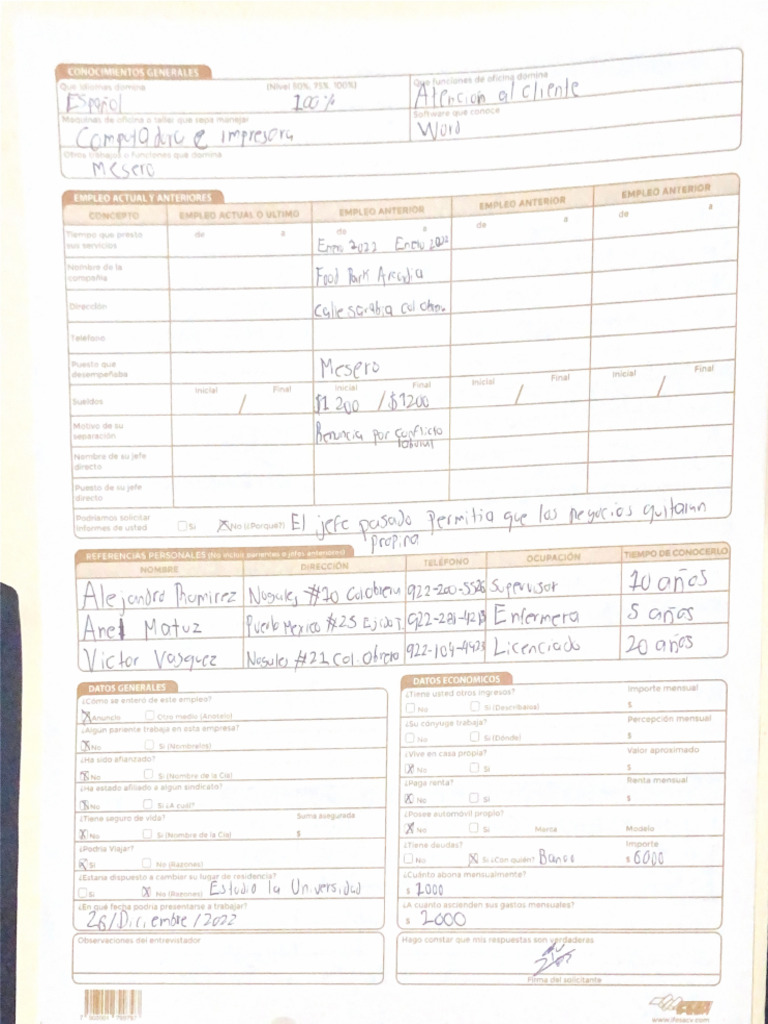 CONOCIMIENTOS GENERALES
Que idiomas domina (Nivel 50%, 75%, 100%) Que funciones de oficina domina
Español 100% Atencion al cliente
Maquinas de oficina o taller que sepa manejar Software que conoce
Computadora e impresora Word
Otros trabajos o funciones que domina
Mesero
EMPLEO ACTUAL Y ANTERIORES
CONCEPTO EMPLEO ACTUAL O ULTIMO EMPLEO ANTERIOR EMPLEO ANTERIOR EMPLEO ANTERIOR
Tiempo que presto sus servicios de a de a de a de a
Enero 2022 Enero 2022
Nombre de la compañia Food Park Arcadia
Dirección Calle sarabia col
Teléfono
Puesto que desempeñaba Mesero
Sueldos Inicial / Final Inicial Final Inicial / Final Inicial / Final
$1200 / $1200
Motivo de su separación Renuncia por conflicto laboral
Nombre de su jefe directo
Puesto de su jefe directo
Podriamos solicitar informes de usted Si X No (¿Porque?) El jefe pasado permitia que los negocios quitaran
propina
REFERENCIAS PERSONALES (No incluir parientes o jefes anteriores)
NOMBRE DIRECCIÓN TELÉFONO OCUPACIÓN TIEMPO DE CONOCERLO
Alejandro Ramirez Nogales #70 Col obrera 922-200-5526 Supervisor 10 años
Matuz Puerto Mexico #25 Enfermera 5 años
Victor Vasquez Nogales #21 Col. Obrero 922-104-4423 Licenciado 20 años
DATOS GENERALES
¿Como se entero de este empleo?
X Anunci Otro medio (Anotelo)
¿Algún pariente trabaja en esta empresa?
X No Si (Nombrelos)
¿Ha sido afianzado?
X No Si (Nombre de la Cia)
¿Ha estado afiliado a algun sindicato?
X No Si ¿A cual?
¿Tiene seguro de vida? Suma asegurada
X No Si (Nombre de la Cia) $
¿Podria Viajar?
X Si No (Razones)
¿Estaria dispuesto a cambiar su lugar de residencia?
Si X No (Razones) Estudio la Universidad
¿En qué fecha podria presentarse a trabajar?
26/Diciembre/2022
Observaciones del entrevistador
DATOS ECONOMICOS
¿Tiene usted otros ingresos? Importe mensual
No Si (Describalos) $
¿Su cónyuge trabaja? Percepción mensual
No Si (Dónde) $
¿Vive en casa propia? Valor aproximado
X No Si $
¿Paga renta? Renta mensual
X No Si $
¿Posee automóvil propio?
X No Si Marca Modelo
¿Tiene deudas? Importe
No X Si ¿Con quién? Banco $ 6000
¿Cuánto abona mensualmente?
$ 1000
¿A cuanto ascienden sus gastos mensuales?
$ 2000
Hago constar que mis respuestas son verdaderas
Firma del solicitante